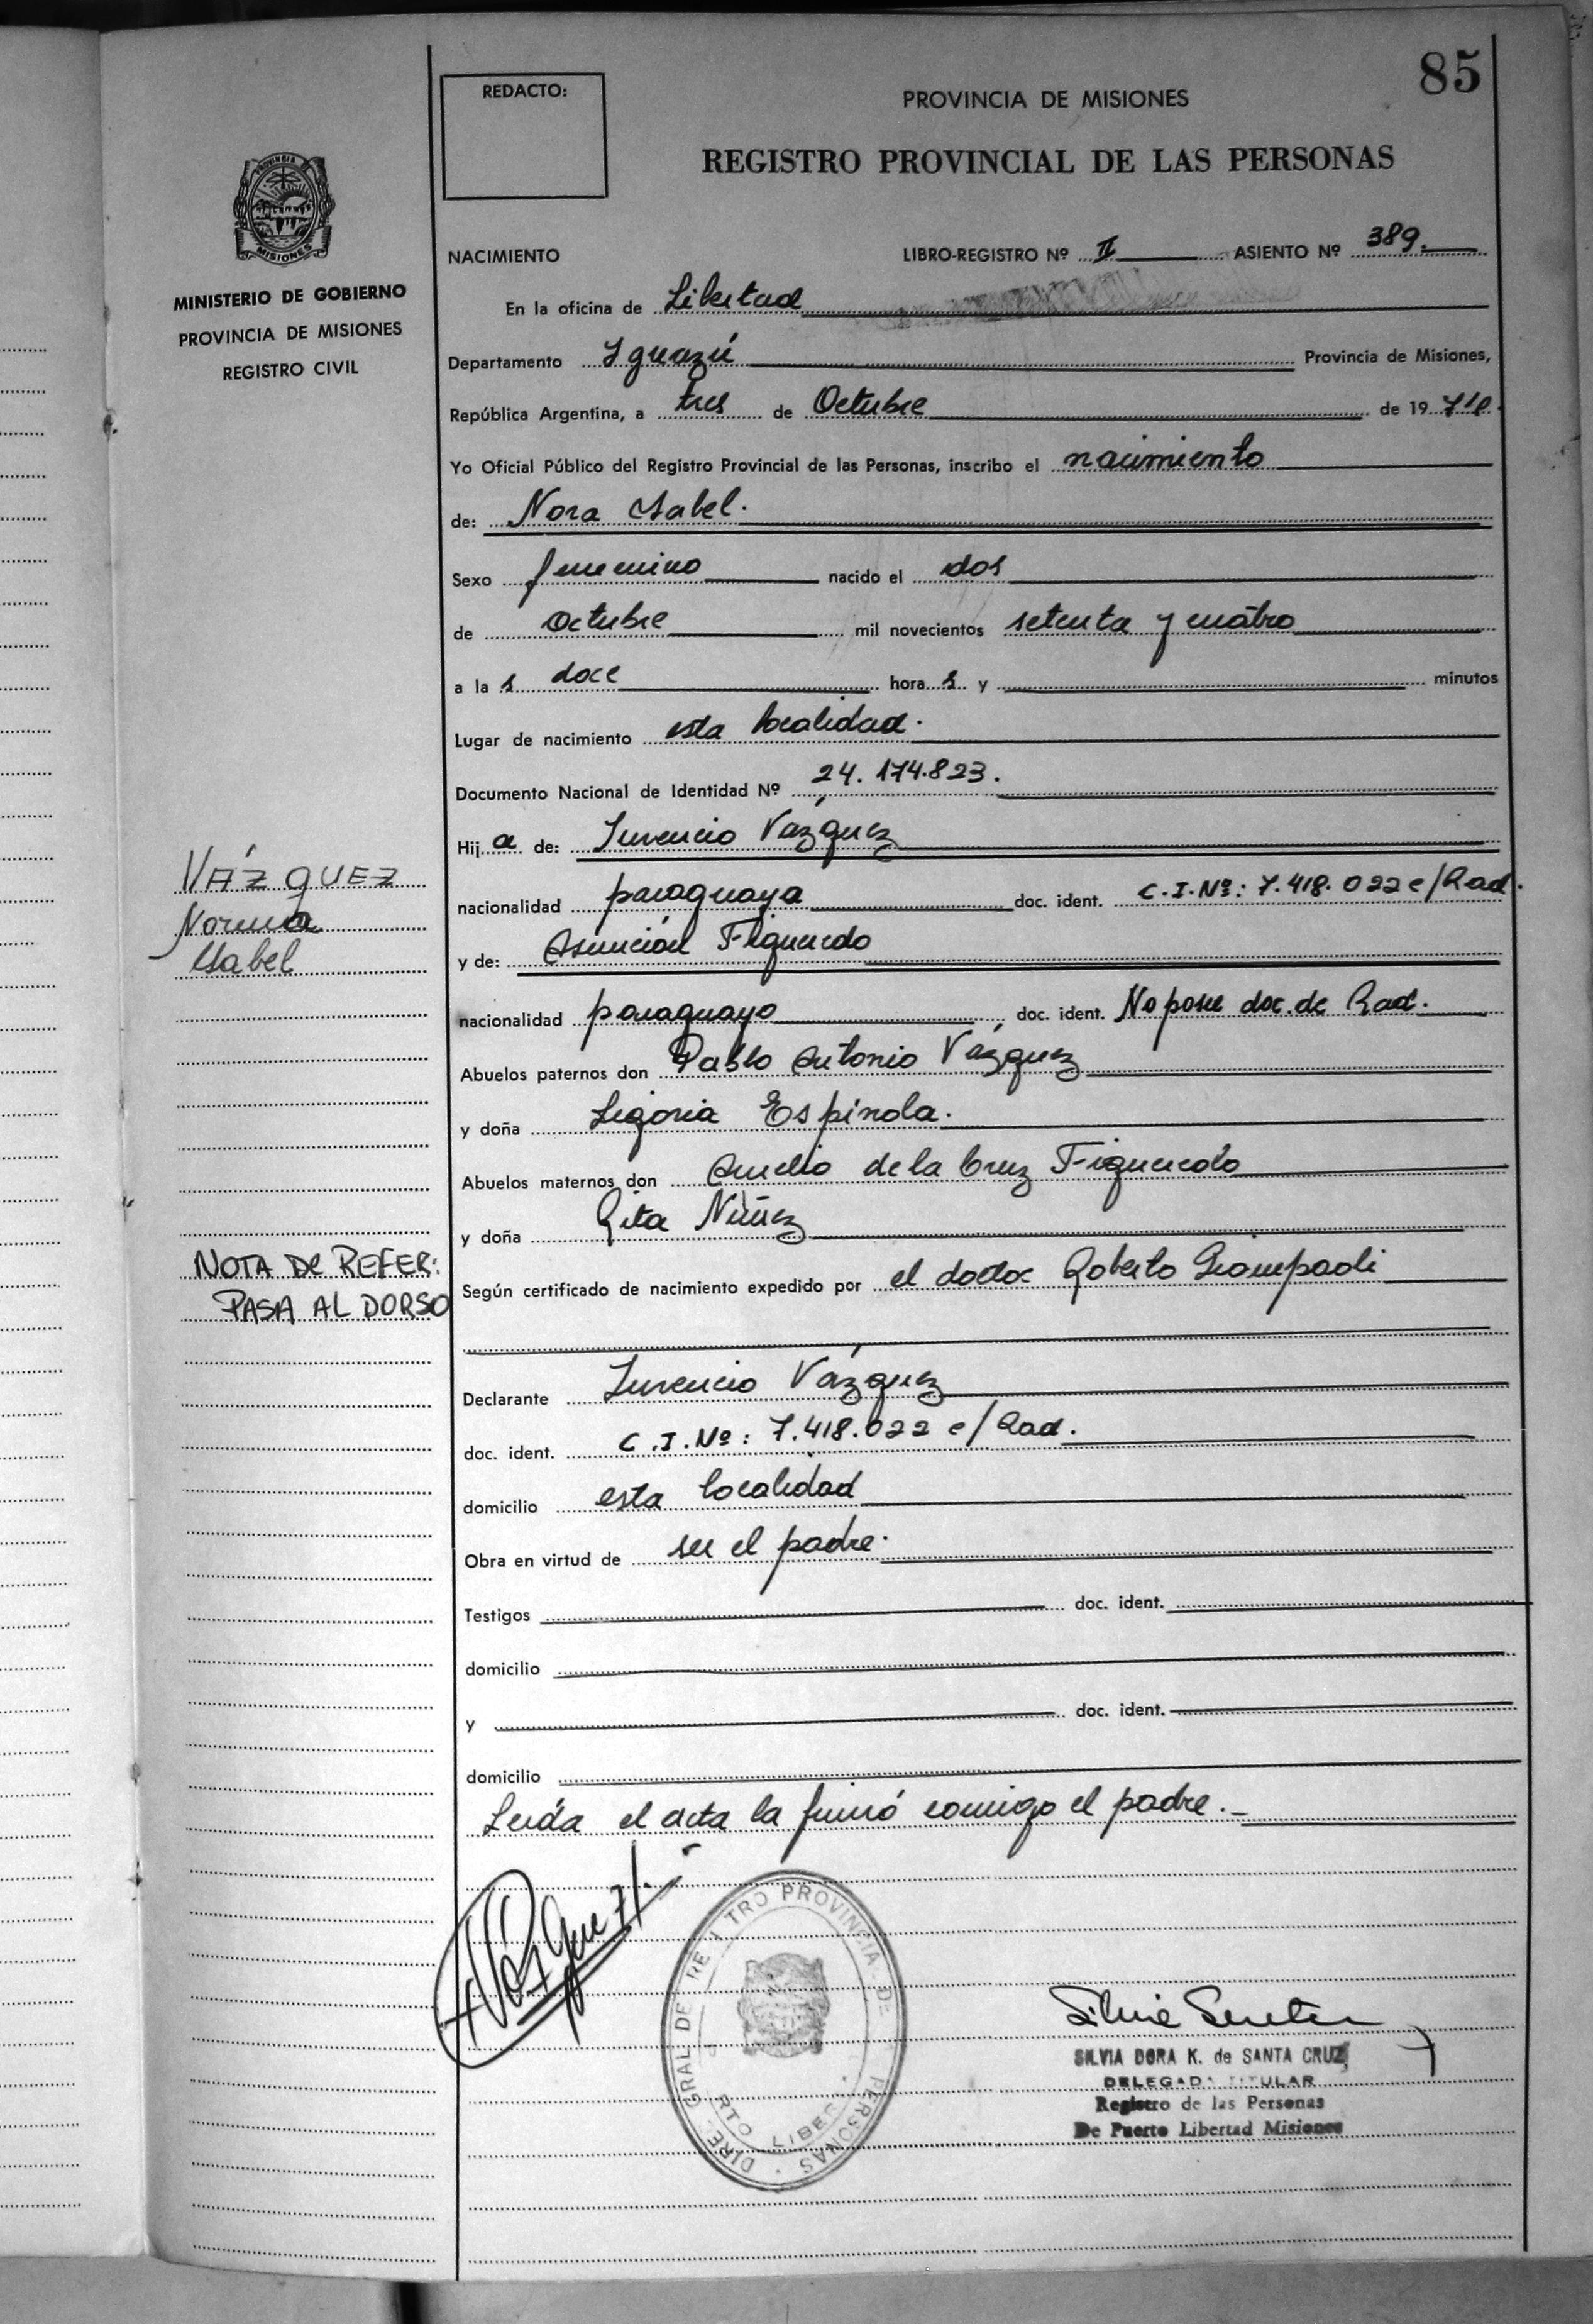 85
REDACTO:
PROVINCIA DE MISIONES
REGISTRO PROVINCIAL DE LAS PERSONAS
MISIONES
MINISTERIO DE GOBIERNO
PROVINCIA DE MISIONES
REGISTRO CIVIL
NACIMIENTO LIBRO-REGISTRO Nº II ASIENTO Nº 389.
En la oficina de Libertad
Departamento Iguazú Provincia de Misiones,
República Argentina, a tres de Octubre de 19
Yo Oficial Público del Registro Provincial de las Personas, inscribo el nacimiento
de: Nora Isabel.
Sexo femenino nacido el dos
de octubre mil novecientos setenta y cuatro
a la s doce hora s y minutos
Lugar de nacimiento esta localidad.
Documento Nacional de Identidad Nº 24.174.823.
Hij a de: Juvencio Vázquez
nacionalidad paraguaya doc. ident. C.I.Nº: 7.418.022 c/Rad.
y de: Asunción Figueredo
nacionalidad paraguayo doc. ident. No posee doc. de Rad.
Abuelos paternos don Pablo Antonio Vázquez
y doña Ligoria Espínola.
Abuelos maternos don Aurelio de la Cruz Figueredo
y doña Rita Núñez
Según certificado de nacimiento expedido por el doctor Roberto Giampaoli
Declarante Juvencio Vázquez
doc. ident. C.I.Nº: 7.418.022 c/Rad.
domicilio esta localidad
Obra en virtud de ser el padre.
Testigos doc. ident.
domicilio
y doc. ident.
domicilio
Leída el acta la firmó conmigo el padre.
VÁZQUEZ
Norma
Isabel
NOTA DE REFER:
PASA AL DORSO
Vázquez
SILVIA DORA K. de SANTA CRUZ
DELEGADA TITULAR
Registro de las Personas
De Puerto Libertad Misiones